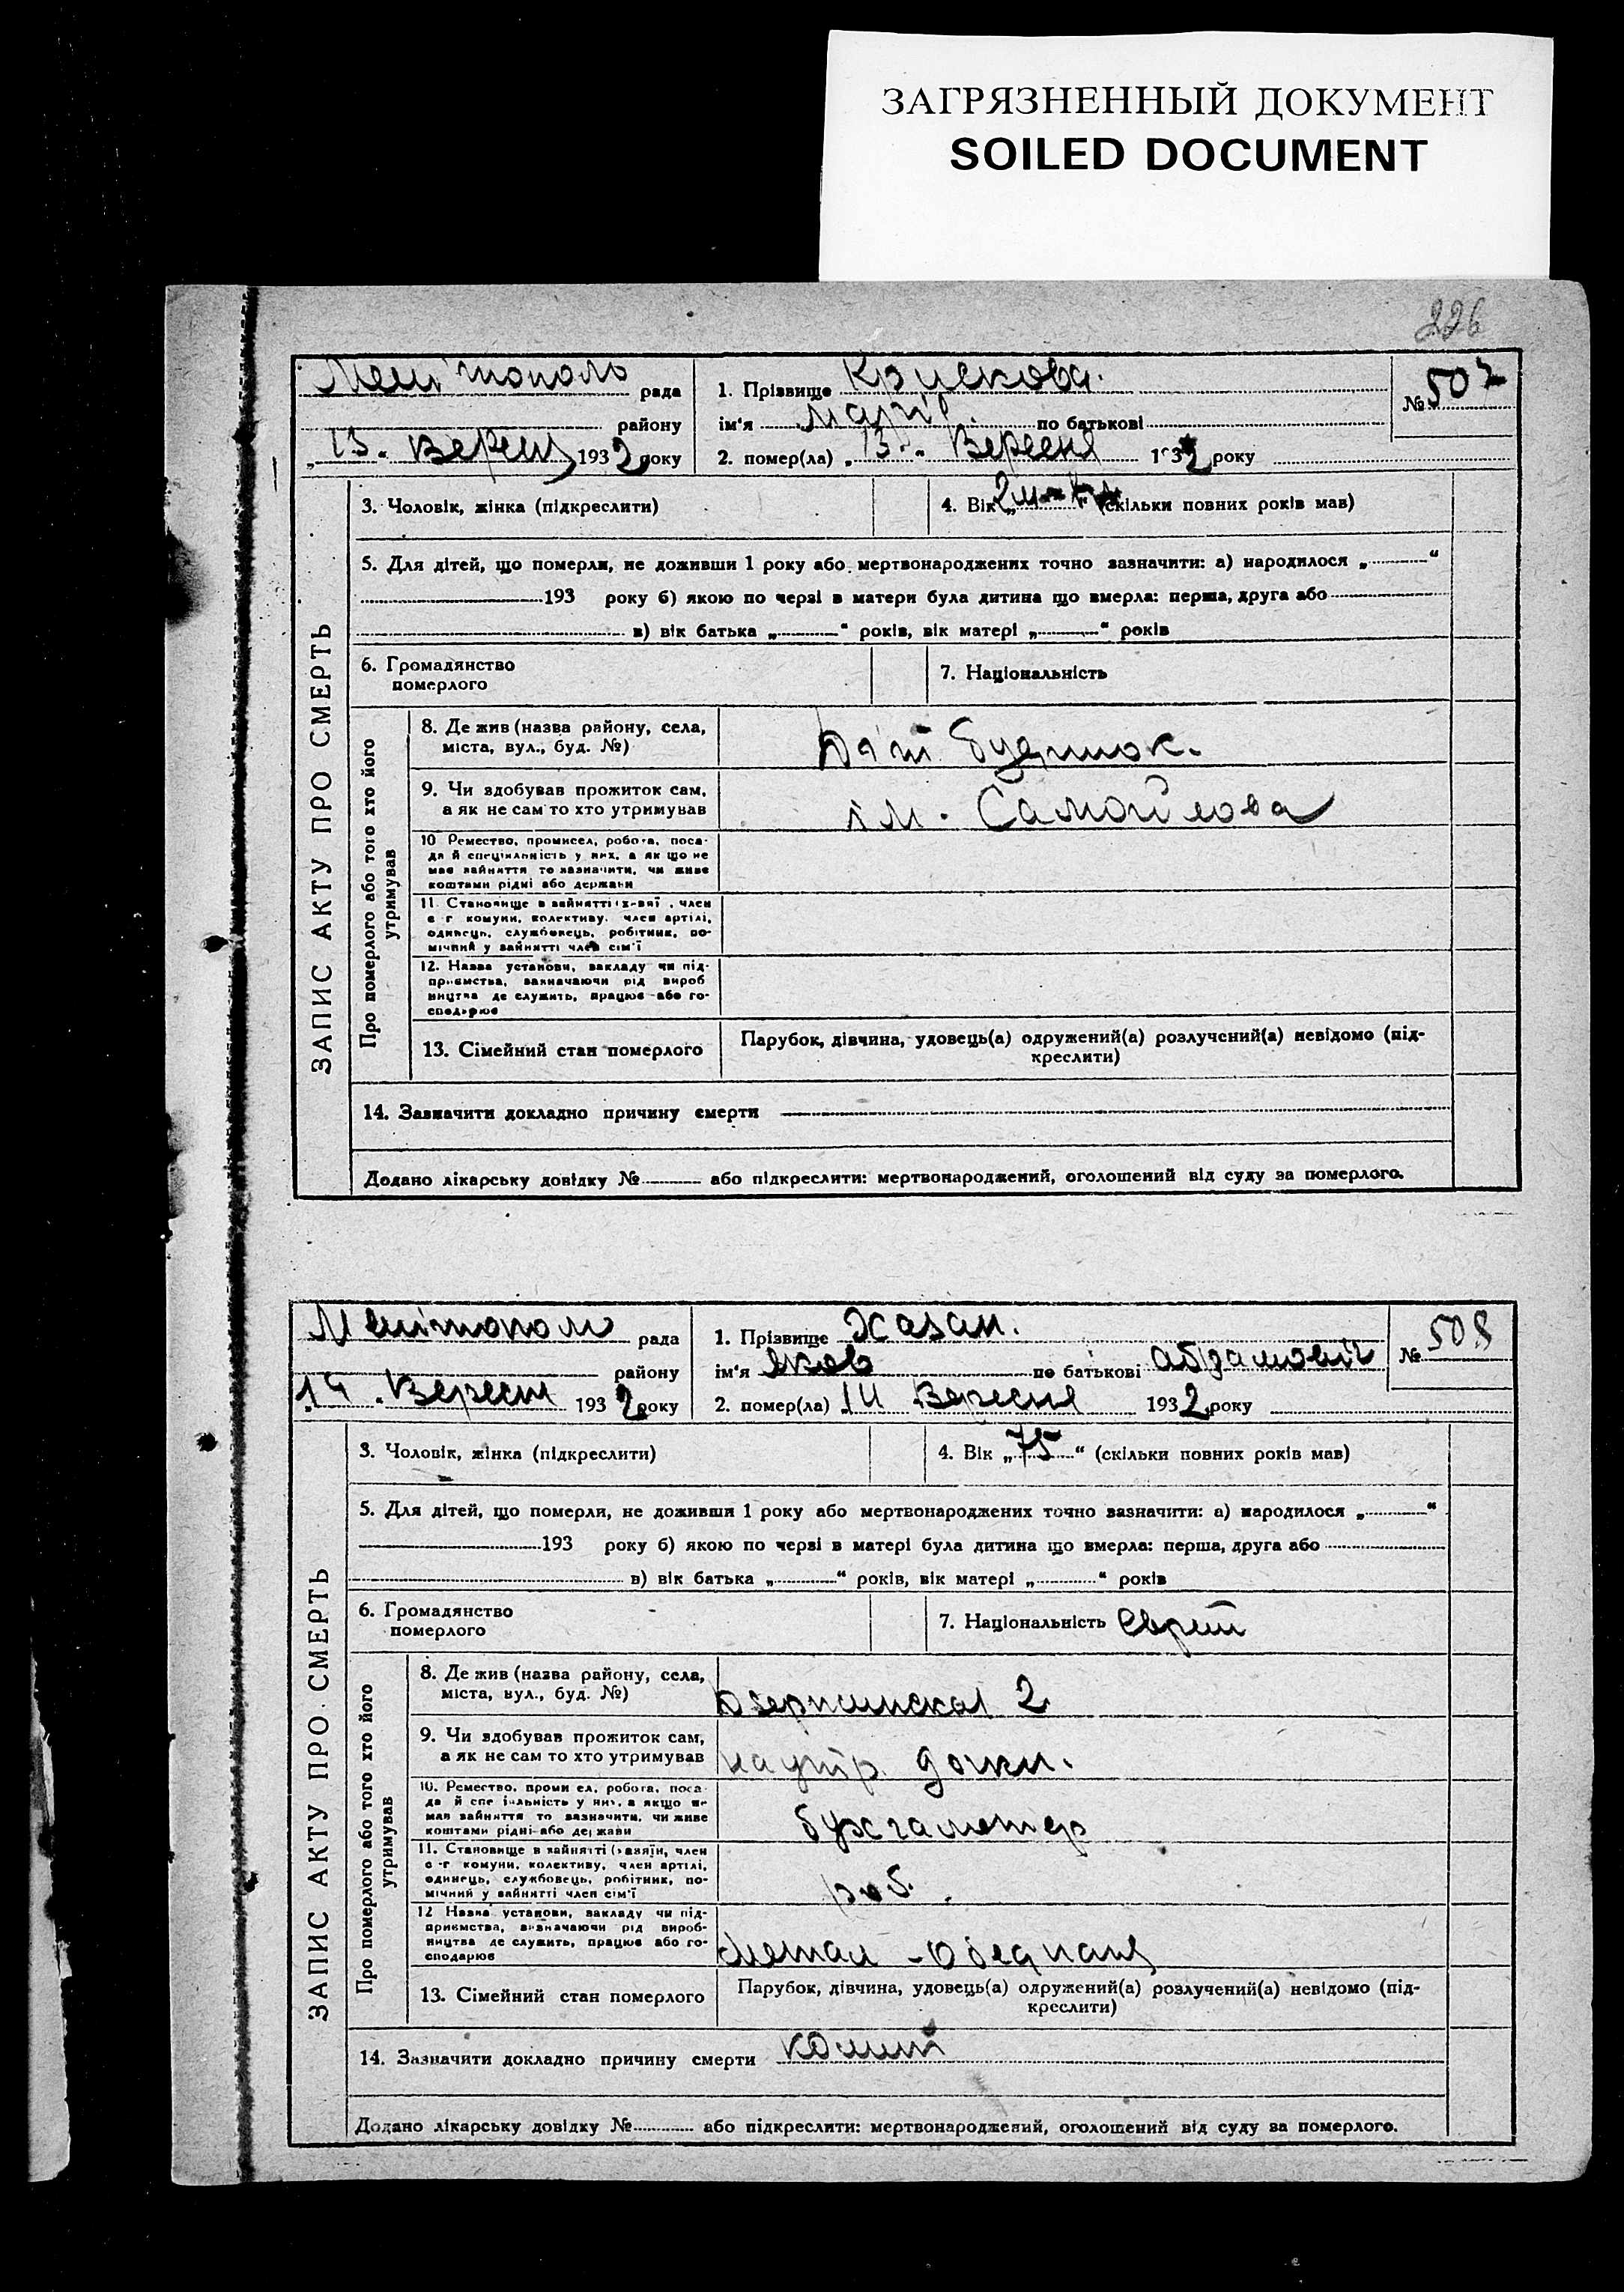 ЗАГРЯЗНЕННЫЙ ДОКУМЕНТ
SOILED DOCUMENT
226
ЗАПИС АКТУ ПРО СМЕРТЬ
Мелітополь рада
району
„13" Вересня 1932 року
1. Прізвище
ім'я Марія по батькові
2. помер(ла) „13" Вересня 1932 року
№ 507
3. Чоловік, жінка (підкреслити)
4. Вік „2 (скільки повних років мав)
5. Для дітей, що померли, не доживши 1 року або мертвонароджених точно зазначити: а) народилося „ "
193 року б) якою по черзі в матери була дитина що вмерла: перша, друга або
в) вік батька „ " років, вік матері „ " років
6. Громадянство
померлого
7. Національність
Про померлого або того хто його
утримував
8. Де жив (назва району, села,
міста, вул., буд. №)
Дят будинок.
9. Чи здобував прожиток сам,
а як не сам то хто утримував
ім. Самойлова
10 Ремество, промисел, робота, поса-
да й спеціяльність у них, а як що не
мав зайняття то зазначити, чи живе
коштами рідні або держави
11. Становище в зайнятті (х-вяї , член
с г комуни, колективу, член артілі,
одинець, службовець, робітник, по-
мічний у зайнятті член сім'ї
12. Назва установи, закладу чи під-
приємства, зазначаючи рід вироб
ництва де служить, працює або го-
сподарює
13. Сімейний стан померлого
Парубок, дівчина, удовець(а) одружений(а) розлучений(а) невідомо (під-
креслити)
14. Зазначити докладно причину смерти
Додано лікарську довідку № або підкреслити: мертвонароджений, оголошений від суду за померлого.
ЗАПИС АКТУ ПРО СМЕРТЬ
Мелітополь рада
району
14 Вересня 1932 року
1. Прізвище Хазан.
ім'я Яков по батькові Абрамович
2. помер(ла) 14 Вересня 1932 року
№ 508
3. Чоловік, жінка (підкреслити)
4. Вік „75" (скільки повних років мав)
5. Для дітей, що померли, не доживши 1 року або мертвонароджених точно зазначити: а) народилося „ "
193 року б) якою по черзі в матері була дитина що вмерла: перша, друга або
в) вік батька „ " років, вік матері „ " років
6. Громадянство
померлого
7. Національність Єврей
Про померлого або того хто його
утримував
8. Де жив (назва району, села,
міста, вул., буд. №)
Дзержинская 2
9. Чи здобував прожиток сам,
а як не сам то хто утримував
на утр. дочки.
10. Ремество, промисел, робота, поса-
да й спеціяльність у них, а якщо не
мав зайняття то зазначити, чи живе
коштами рідні або держави
бухгалтер
11. Становище в зайнятті (хазяїн, член
с -г комуни, колективу, член артілі,
одинець, службовець, робітник, по-
мічний у зайнятті член сім'ї
роб.
12 Назва установи, закладу чи під-
приємства, зазначаючи рід вироб-
ництва де служить, працює або го-
сподарює
13. Сімейний стан померлого
Парубок, дівчина, удовець(а) одружений(а) розлучений(а) невідомо (під-
креслити)
14. Зазначити докладно причину смерти
Додано лікарську довідку № або підкреслити: мертвонароджений, оголошений від суду за померлого.